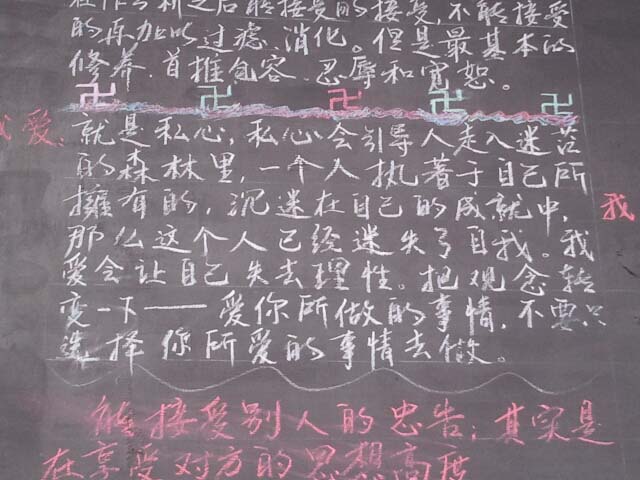 在作分析之后能接受的接受,不能接受
的再加以过滤、消化。但是最基本的
修养、首推包容、忍辱和宽恕。
卐 卐 卐 卐 卐
我爱、就是私心,私心会引导人走入迷茫
的森林里,一个人执著于自己所
擁有的,沉迷在自己的成就中,
那么这个人已经迷失了自我。我
爱会让自己失去理性。把观念转
变一下——爱你所做的事情,不要只
选择你所爱的事情去做。
能接受别人的忠告;其实是
在享受对方的思想高度